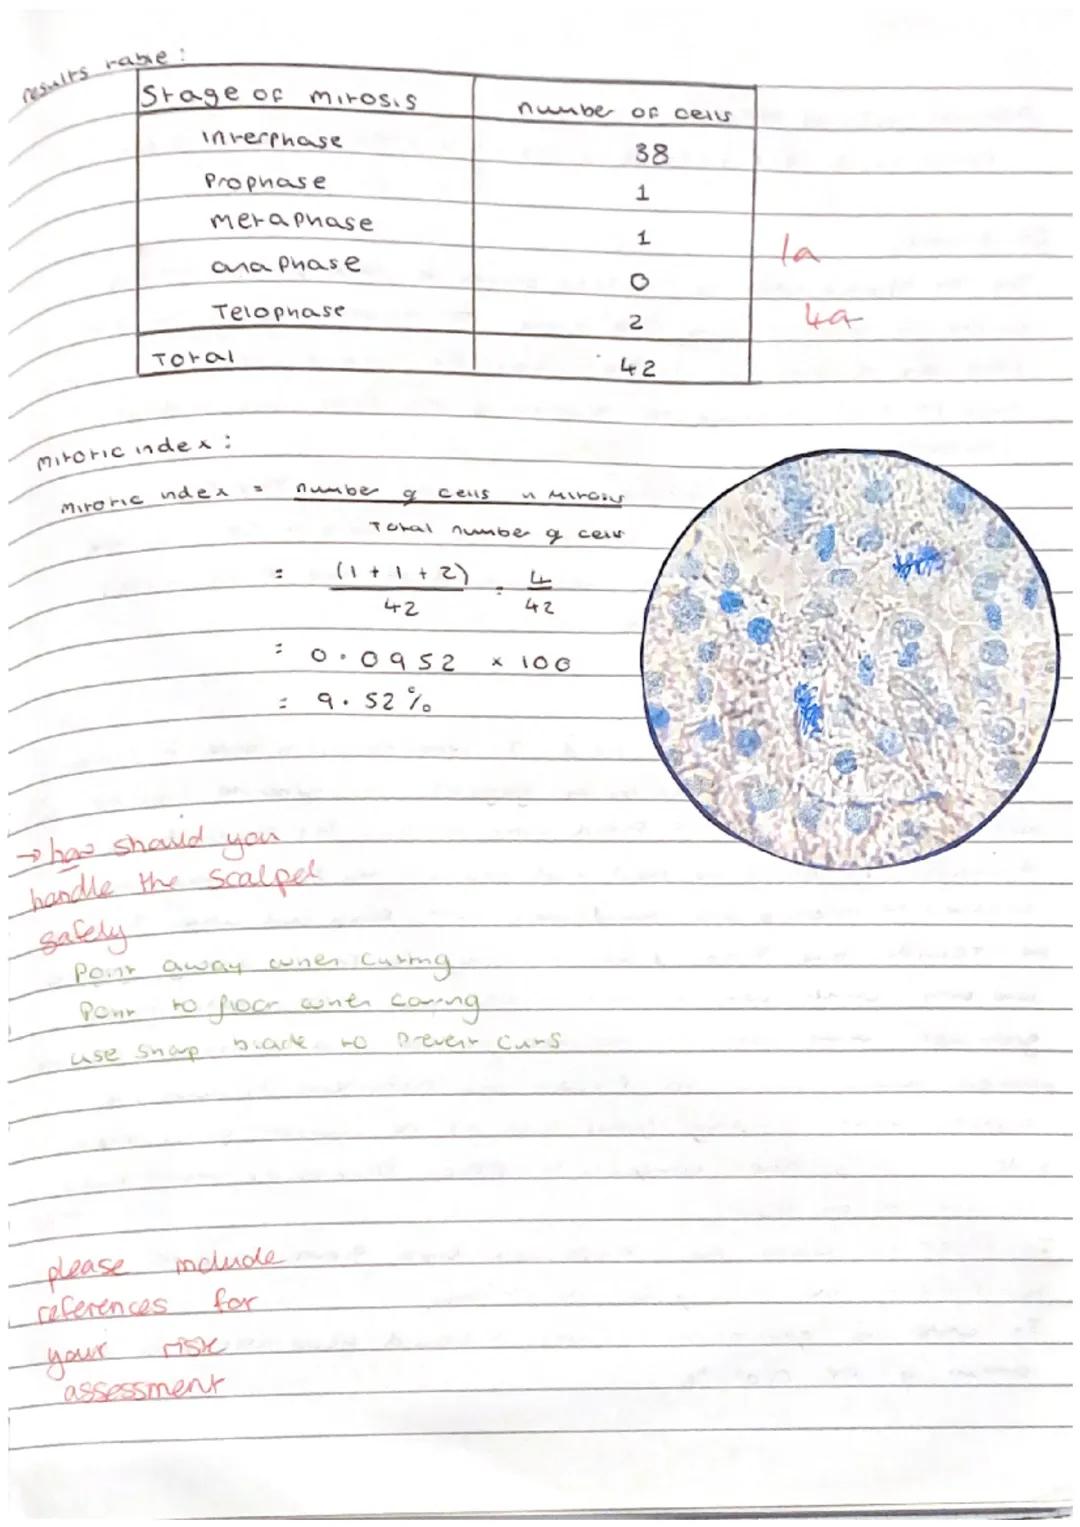 results table :
Stage of mitosis number of cells
interphase 38
Prophase 1
metaphase 1
anaphase 0
Telophase 2
Total 42
1a
4a
mitotic index :
Mitotic index = number of cells in Mitosis
Total number of cells
= (1 + 1 + 2) = 4
42 42
= 0.0952 × 100
= 9.52%
→ how should you
handle the scalpel
safely
Point away when cutting
Point to floor when carrying
use sharp blade to prevent cuts
please include
references for
your risk
assessment